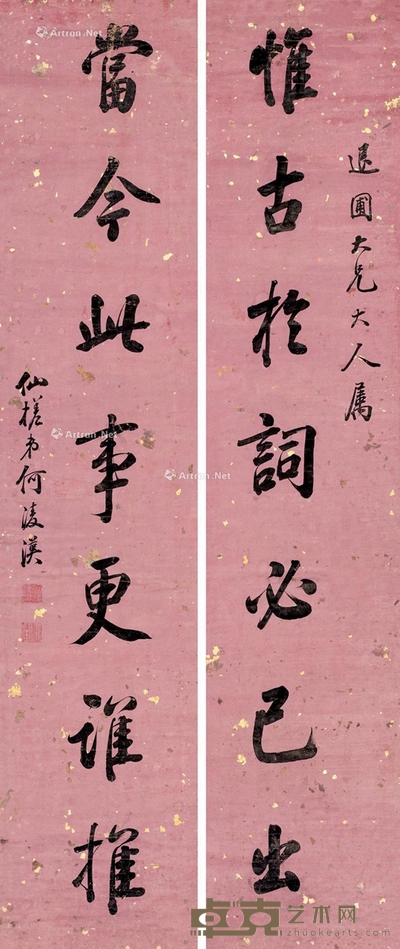 退圃大兄大人属
惟古於詞必己出
當今此事更誰推
仙槎弟何淩漢
Artron.Net
Artron.Net
Artron.Net
Artron.Net
卓克艺术网
zhuokearts.com